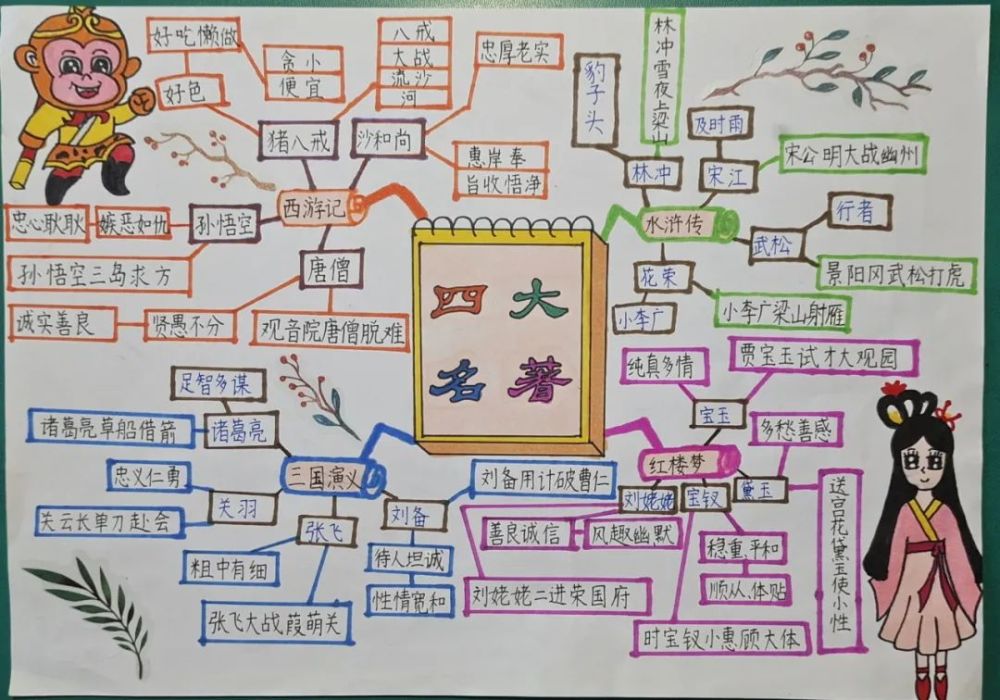 四大
名著
西游记
猪八戒
好吃懒做
好色
贪小
便宜
沙和尚
八戒
大战
流沙
河
忠厚老实
惠岸奉
旨收悟净
孙悟空
嫉恶如仇
忠心耿耿
孙悟空三岛求方
唐僧
贤愚不分
诚实善良
观音院唐僧脱难
水浒传
林冲
豹子头
林冲雪夜上梁山
宋江
及时雨
宋公明大战幽州
武松
行者
景阳冈武松打虎
花荣
小李广
小李广梁山射雁
三国演义
诸葛亮
足智多谋
诸葛亮草船借箭
关羽
忠义仁勇
关云长单刀赴会
张飞
粗中有细
张飞大战葭萌关
刘备
刘备用计破曹仁
待人坦诚
性情宽和
红楼梦
宝玉
纯真多情
贾宝玉试才大观园
黛玉
多愁善感
送宫花黛玉使小性
宝钗
稳重,平和
顺从、体贴
时宝钗小惠顾大体
刘姥姥
风趣幽默
善良诚信
刘姥姥二进荣国府